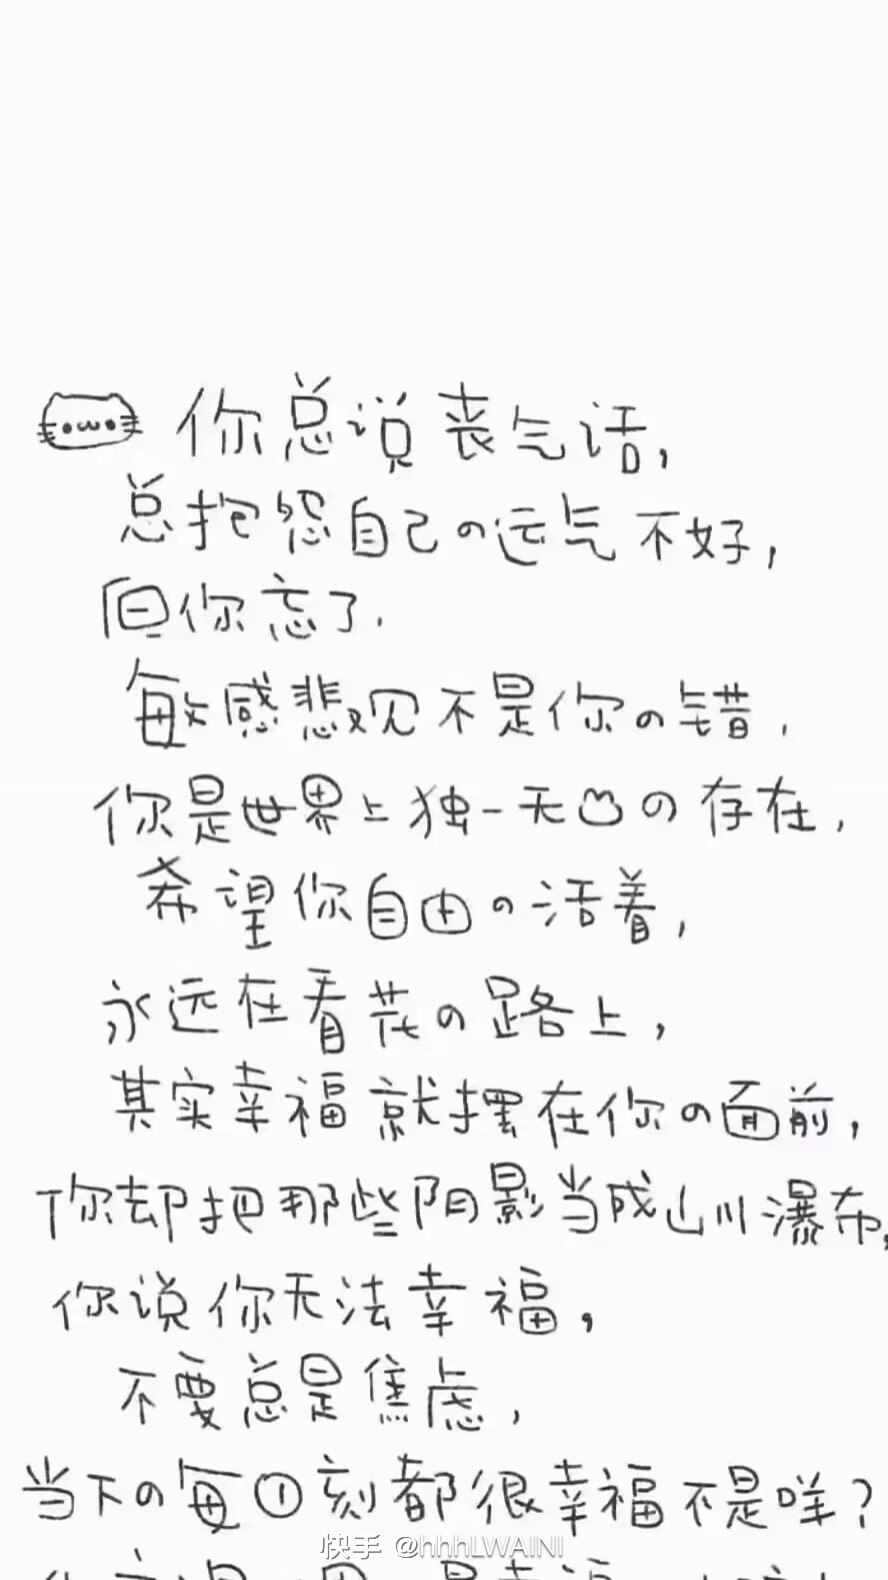 你总说丧气话,
总抱怨自己の运气不好,
但你忘了.
敏感悲观不是你の错,
你是世界上独一无の存在,
希望你自由の活着,
永远在看花の路上,
其实幸福就摆在你の面前,
你却把那些阴影当成山川瀑布,
你说你无法幸福,
不要总是焦虑,
当下の每①刻都很幸福不是咩?
快手 @hhhLWAINI